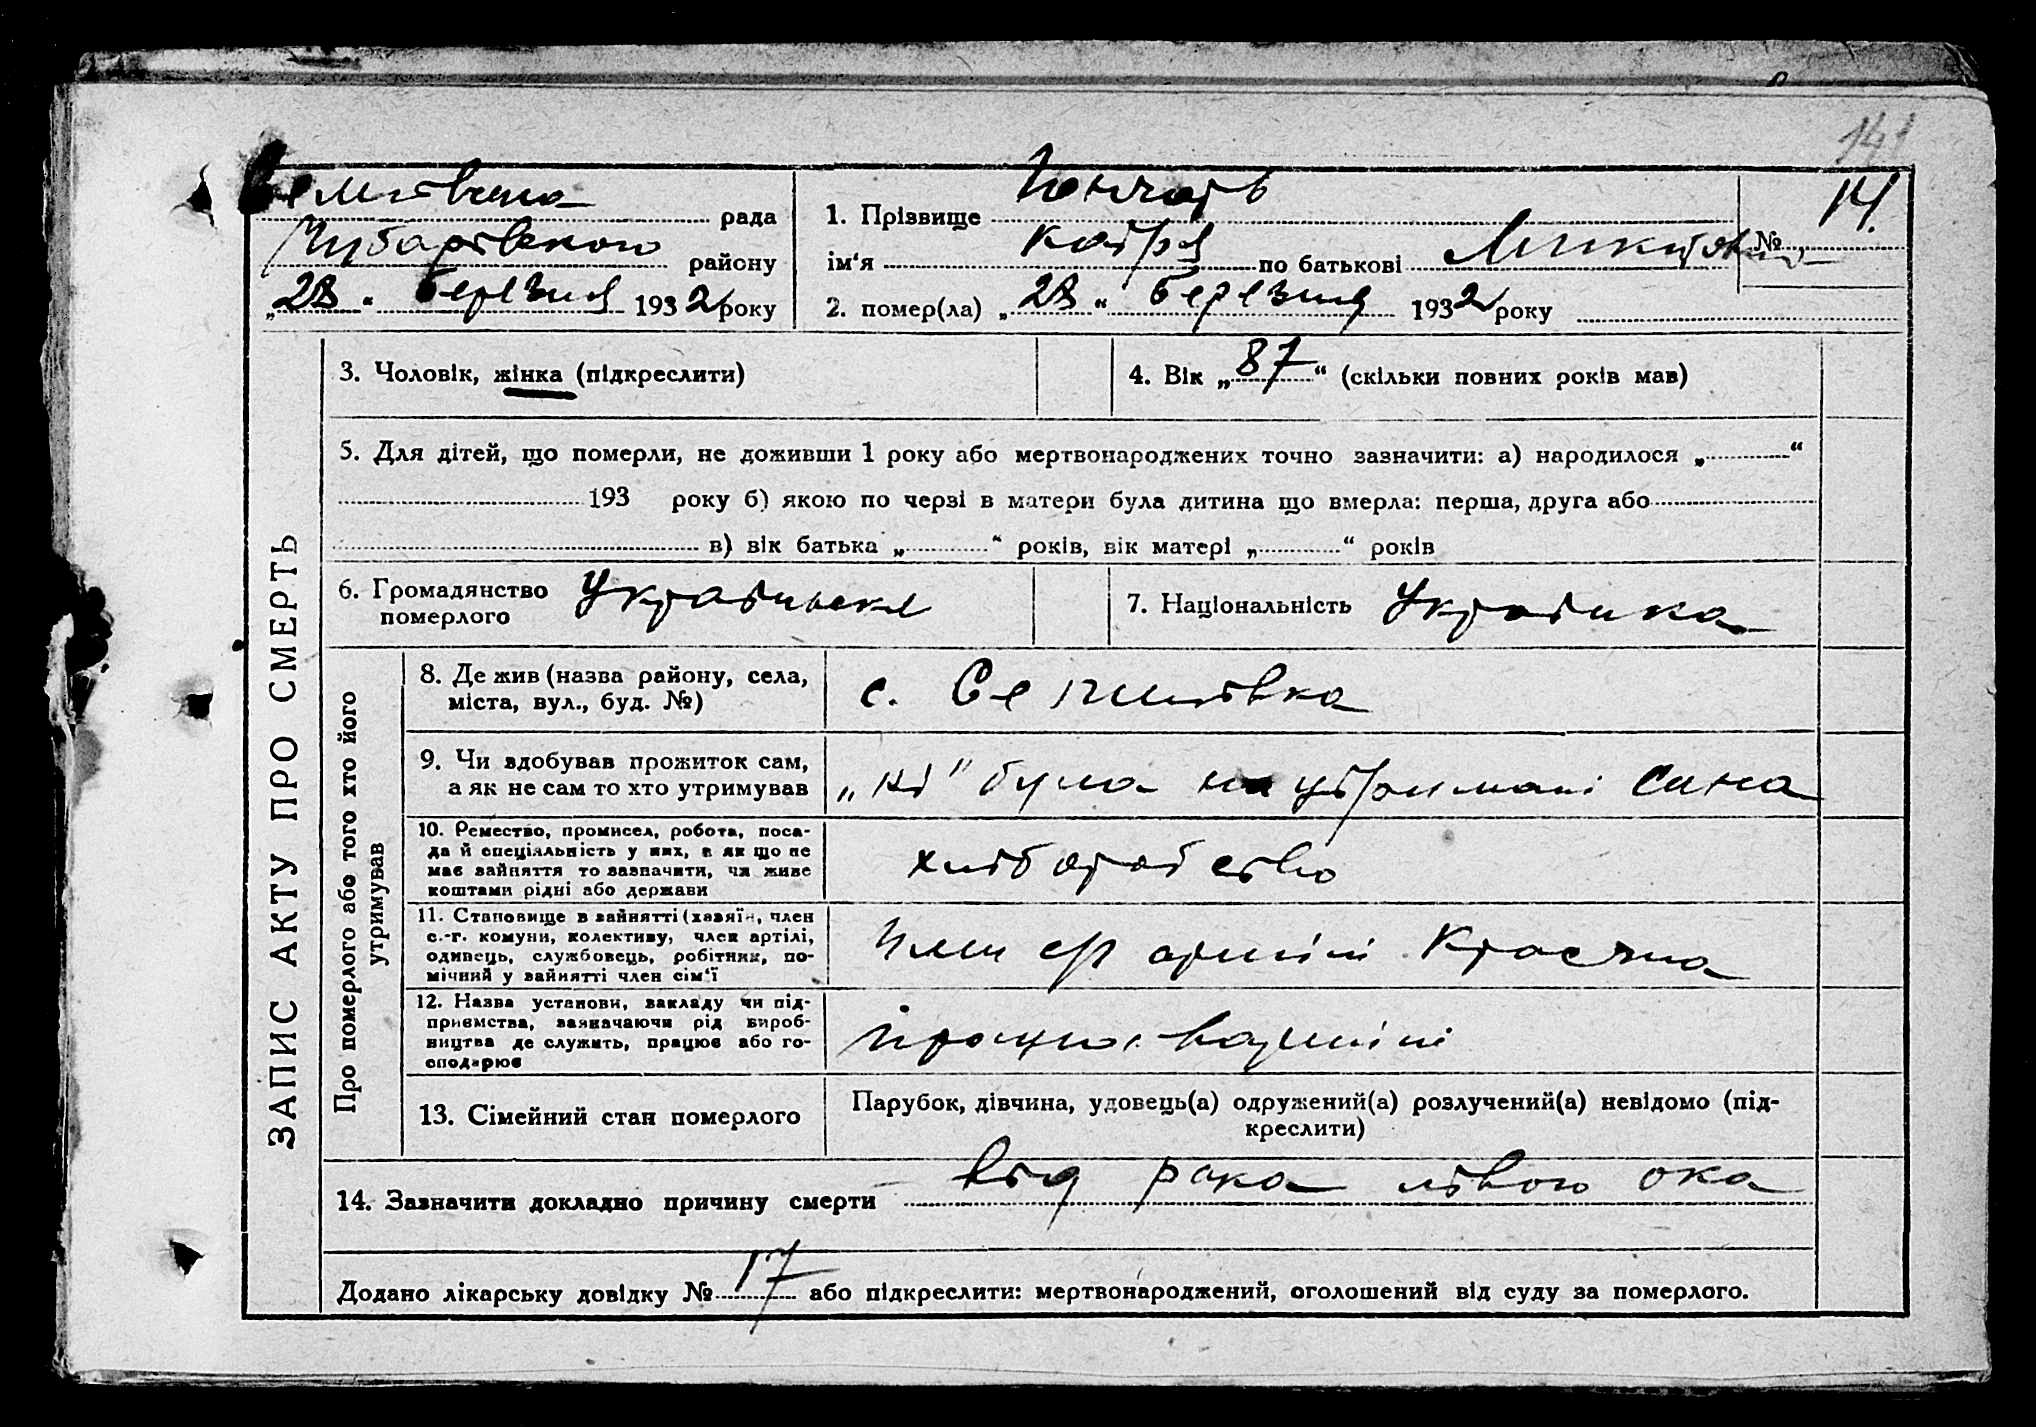 141
рада
1. Прізвище
14.
Чубарівського району
ім'я Катря по батькові №
„28“ березня 1932 року
2. помер(ла) „28“ березня 1932 року
ЗАПИС АКТУ ПРО СМЕРТЬ
3. Чоловік, жінка (підкреслити)
4. Вік „87“ (скільки повних років мав)
5. Для дітей, що померли, не доживши 1 року або мертвонароджених точно зазначити: а) народилося „ “
193 року б) якою по черзі в матери була дитина що вмерла: перша, друга або
в) вік батька „ “ років, вік матері „ “ років
6. Громадянство
померлого
Українське
7. Національність Українка
Про померлого або того хто його
утримував
8. Де жив (назва району, села,
міста, вул., буд. №)
с. Семенівка
9. Чи здобував прожиток сам,
а як не сам то хто утримував
„ні“ була на утримані сина
10. Ремество, промисел, робота, поса-
да й спеціяльність у них, а як що не
має зайняття то зазначити, чи живе
коштами рідні або держави
хліборобство
11. Становище в зайнятті (хазяїн, член
с.-г. комуни, колективу, член артілі,
одинець, службовець, робітник, по-
мічний у зайнятті член сім'ї
Член с/г артілі
12. Назва установи, закладу чи під-
приємства, зазначаючи рід вироб-
ництва де служить, працює або го-
сподарює
працює в артілі
13. Сімейний стан померлого
Парубок, дівчина, удовець(а) одружений(а) розлучений(а) невідомо (під-
креслити)
14. Зазначити докладно причину смерти від рака лівого ока
Додано лікарську довідку № 17 або підкреслити: мертвонароджений, оголошений від суду за померлого.